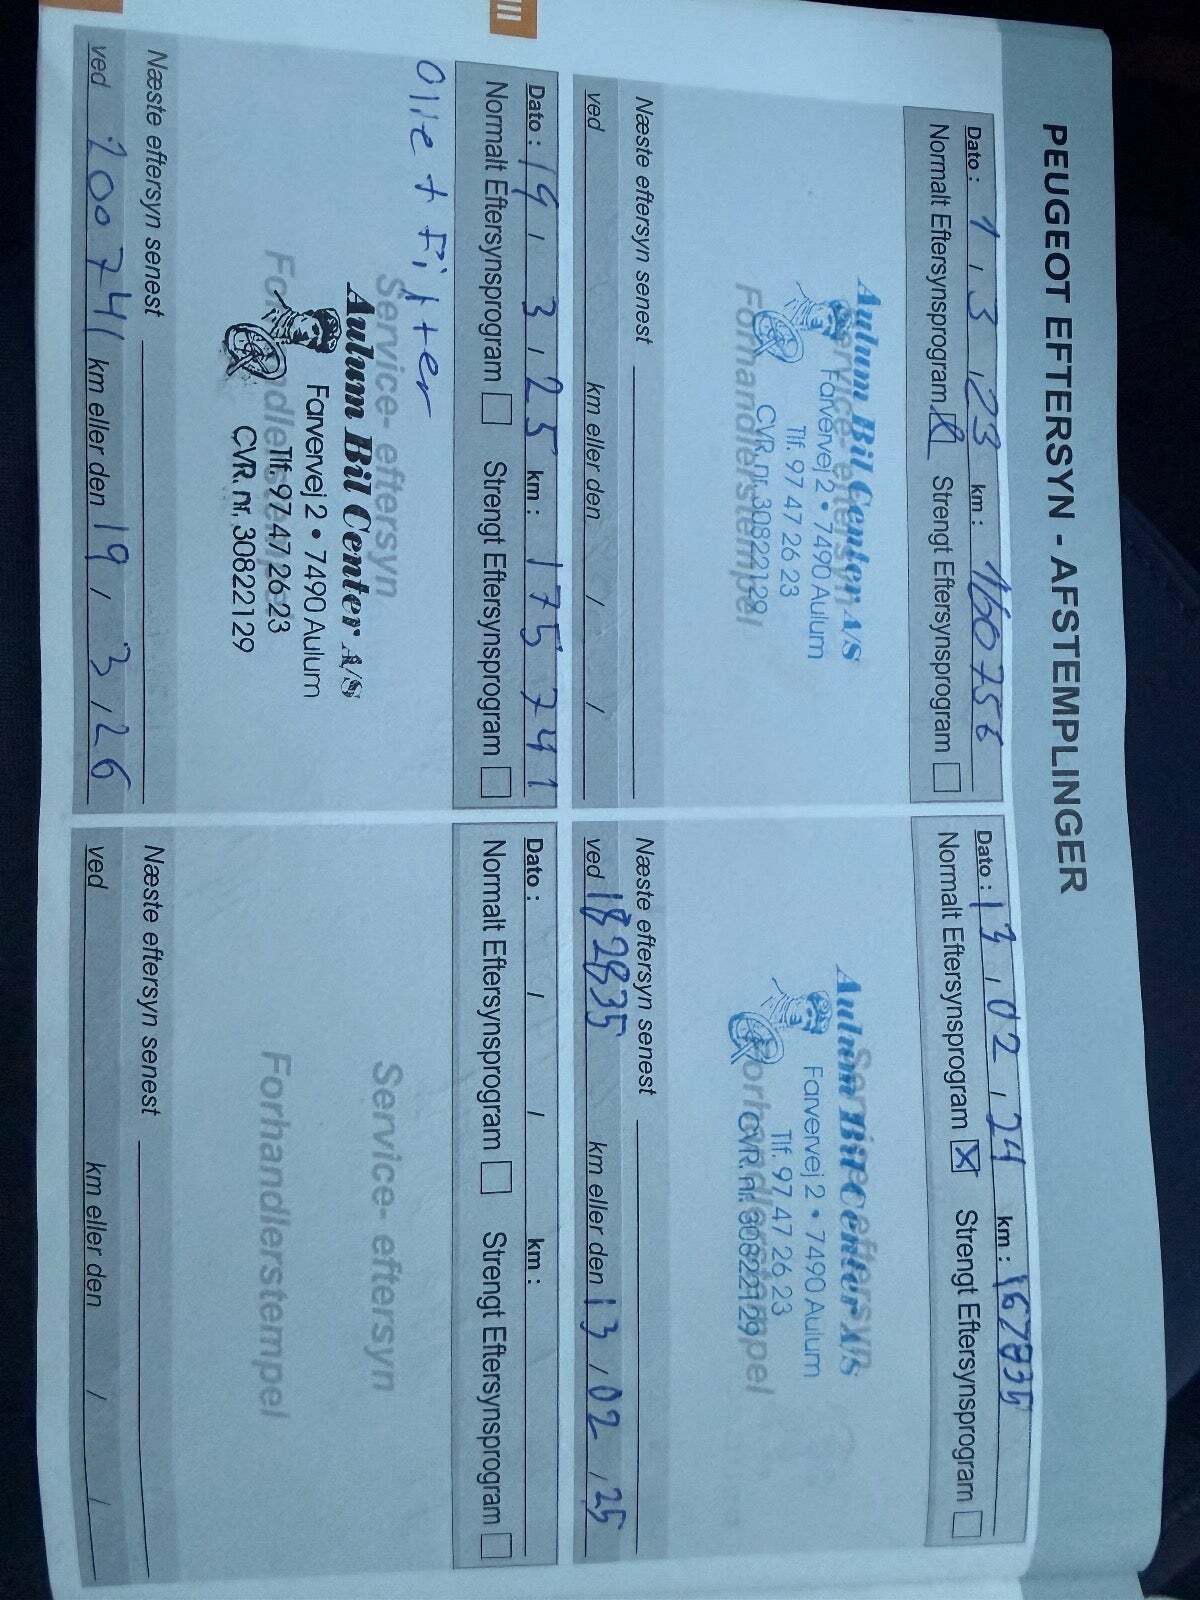 PEUGEOT EFTERSYN - AFSTEMPLINGER
Dato : 1 / 3 / 23 km : 160756
Normalt Eftersynsprogram ☒ Strengt Eftersynsprogram ☐
Service- eftersyn
Forhandlerstempel
Aulum Bil Center A/S
Farvervej 2 • 7490 Aulum
Tlf. 97 47 26 23
CVR. nr. 30822129
Næste eftersyn senest
ved km eller den / /
Dato : 13 / 02 / 24 km : 167835
Normalt Eftersynsprogram ☒ Strengt Eftersynsprogram ☐
Service- eftersyn
Forhandlerstempel
Aulum Bil Center A/S
Farvervej 2 • 7490 Aulum
Tlf. 97 47 26 23
CVR. nr. 30822129
Næste eftersyn senest
ved 182835 km eller den 13 / 02 / 25
Dato : 19 / 3 / 25 km : 175741
Normalt Eftersynsprogram ☐ Strengt Eftersynsprogram ☐
Olie + Filter
Service- eftersyn
Forhandlerstempel
Aulum Bil Center A/S
Farvervej 2 • 7490 Aulum
Tlf. 97 47 26 23
CVR. nr. 30822129
Næste eftersyn senest
ved 200741 km eller den 19 / 3 / 26
Dato : / / km :
Normalt Eftersynsprogram ☐ Strengt Eftersynsprogram ☐
Service- eftersyn
Forhandlerstempel
Næste eftersyn senest
ved km eller den / /